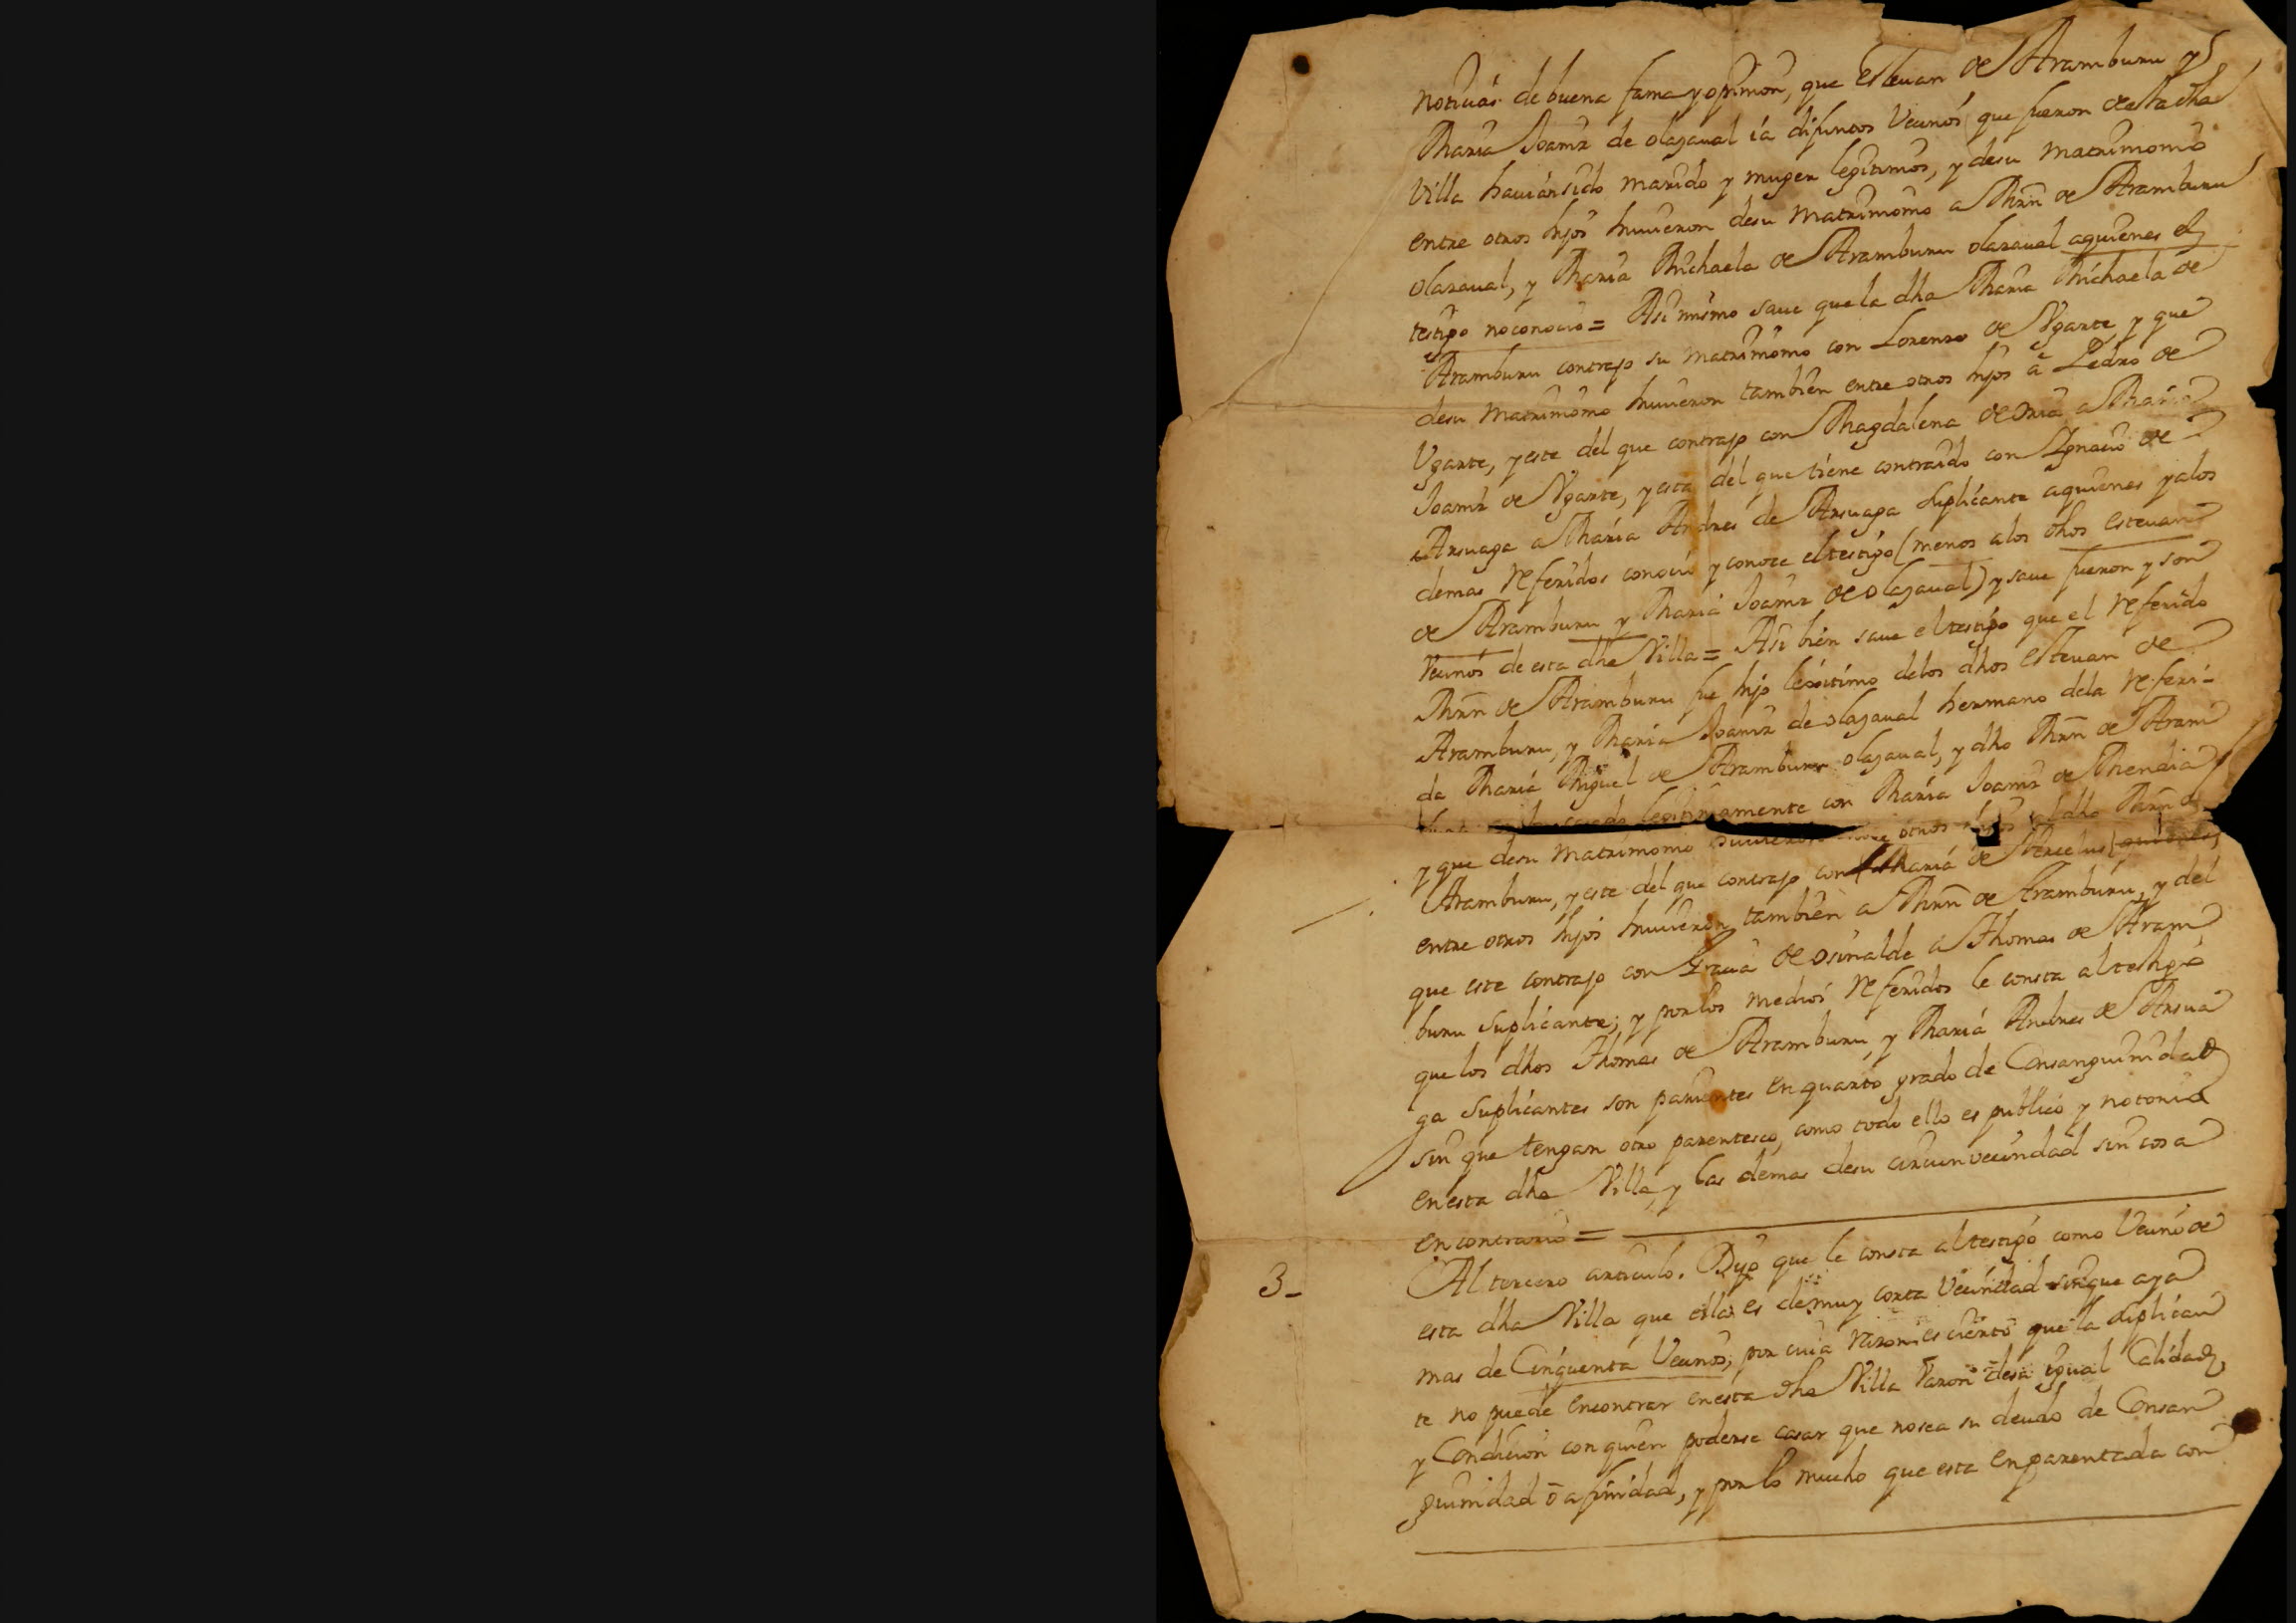 noticias de buena fama y opinion, que Esteuan de Aramburu y
Maria Joanz de olazaual ia difuntos Vecinos que fueron de esta dha
Villa hauian sido marido y muger legitimos, y desu matrimonio
entre otros hijos huuieron desu matrimonio a Mrn de Aramburu
olazaual, y Maria Michaela de Aramburu olazaual aquienes el
testigo no conocio = Asi mismo saue que la dha Maria Michaela de
Aramburu contrajo su matrimonio con Lorenzo de Ugarte, y que
desu matrimonio huuieron tambien entre otros hijos à Pedro de
Ugarte, y este del que contrajo con Magdalena de oria a Maria
Joanz de Ugarte, y esta del que tiene contraido con Ignacio de
Arsuaga a Maria Andres de Arsuaga suplicante aquienes y alos
demas referidos conocio y conoce el testigo (menos a los dhos esteuan
de Aramburu y Maria Joanz de olazaual) y saue fueron y son
Vecinos de esta dha Villa = Asi bien saue el testigo que el referido
Mrn de Aramburu fue hijo lexitimo delos dhos esteuan de
Aramburu, y Maria Joanz de olazaual hermano dela referi-
da Maria Miguel de Aramburu olazaual, y dho Mrn de Aram
casado legitimamente con Maria Joanz de Mendia
y que desu matrimonio huuieron otros hijos al dho Mrn de
Aramburu, y este del que contrajo con Maria de
entre otros hijos huuieron tambien a Mrn de Aramburu, y del
que este contrajo con Gracia de osinalde a Thomas de Aram
buru suplicante; y por los medios referidos le consta al testigo
que los dhos Thomas de Aramburu, y Maria Andres de Arsua
ga suplicantes son parientes en quarto grado de Consanguinidad
sin que tengan otro parentesco, como todo ello es publico y notorio
en esta dha Villa, y las demas desu circunvecindad sin cosa
en contrario =
3- Al tercero articulo. Dijo que le consta al testigo como Vecino de
esta dha Villa que ella es de muy corta Vecindad sin que aya
mas de Cinquenta Vecinos, por cuia razon es cierto que la suplican
te no puede encontrar en esta dha Villa Varon desu igual Calidad,
y Condicion con quien poderse casar que no sea su deudo de Consan
guinidad o afinidad, y por lo mucho que esta enparentada con